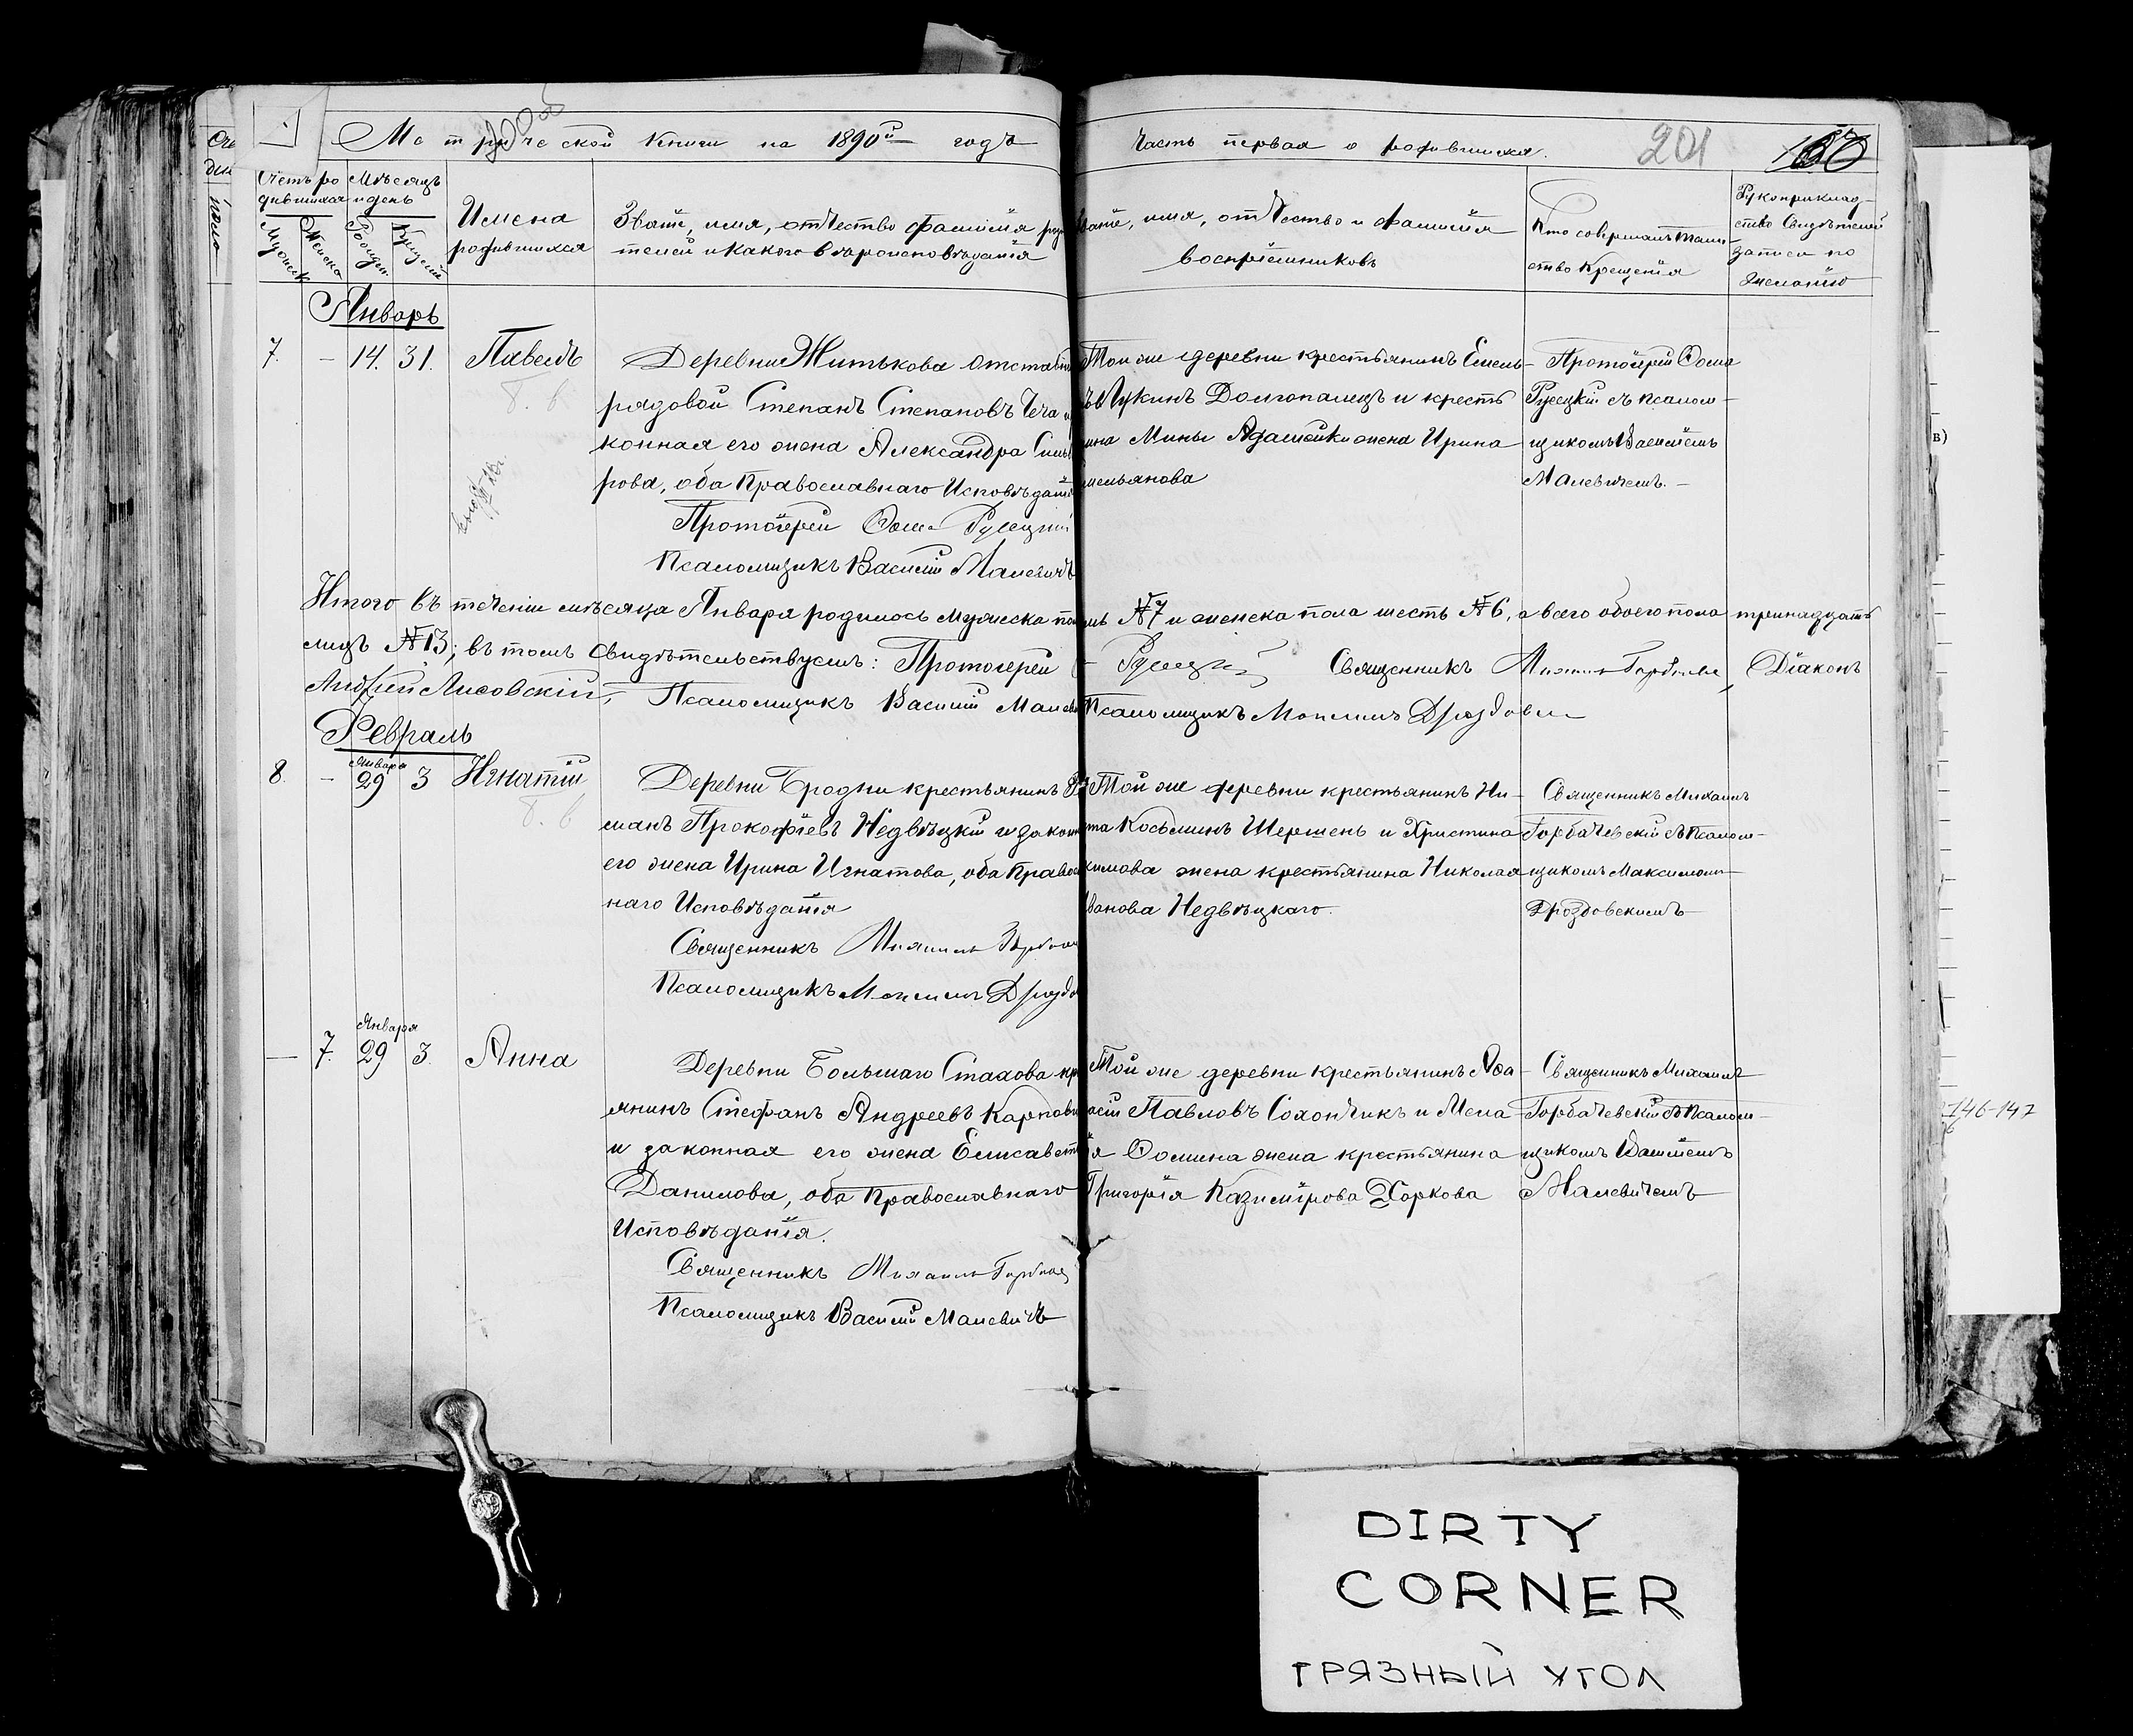 Метрической Книги на 1890й годъ
Часть первая о родившихся.
201
Счетъ ро
дившихся
Мѣсяцъ
и день
Мужеска
Женска
Рожден
Крещен
Имена
родившихся
Званіе, имя, отчество фамилія роди
телей и какого вѣроисповѣданія
Званіе, имя, отчество и фамилія
воспріемниковъ
Кто совершалъ таин-
ство Крещенія
Рукоприклад-
ство свидѣтелей
записи по
желанію
Январь
7. – 14. 31. Павелъ
Деревни Житькова отставн
рядовой Степанъ Степановъ
конная его жена Александра
рова, оба Православнаго Исповѣдані
Протоіерей Ѳома Русецкій
Псаломщикъ Василій Малевичъ
Той же деревни крестьянинъ Емель-
Лукинъ Долгопалецъ и кресть
ина Мины жена Ирина
мельянова
Протоіерей Ѳома
Русецкій съ псалом-
щикомъ Василіемъ
Малевичемъ. –
Итого въ теченіи мѣсяца Января родилось мужеска по
мъ №7 и женска пола шесть №6, а всего обоего пола тринадцать
лицъ №13; въ томъ свидѣтельствуемъ: Протоіерей
Русецкій Священникъ Михаилъ Горбачевс, Діаконъ
Андрей Лисовскій, Псаломщикъ Василій Малев
Псаломщикъ Максимъ Дроздовс
Февраль
8. – Января 29 3 Игнатій
Деревни Бродни крестьянинъ Р
манъ Прокофіевъ Недвѣцкій и закон
его жена Ирина Игнатова, оба Правос
наго Исповѣданія
Священникъ Михаилъ Горбач
Псаломщикъ Максимъ Дроздо
Той же деревни крестьянинъ Ни-
та Косьминъ Шершень и Христина
кимова жена крестьянина Николая
Иванова Недвѣцкаго.
Священникъ Михаилъ
Горбачевскій съ Псалом-
щикомъ Максимомъ
Дроздовскимъ
– 7. Января 29 3. Анна
Деревни Большаго Стахова кр
янинъ Стефанъ Андреевъ Карпови
и законная его жена Елисавет
Данилова, оба Православнаго
Исповѣданія.
Священникъ Михаилъ Горбач
Псаломщикъ Василій Малевичъ
Той же деревни крестьянинъ Аѳа-
асій Павловъ Сохончикъ и Мела-
ія Ѳомина жена крестьянина
Григорія Казимірова Хоркова
Священникъ Михаилъ
Горбачевскій съ Псалом-
щикомъ Василіемъ
Малевичемъ
146-147
DIRTY
CORNER
ГРЯЗНЫЙ УГОЛ